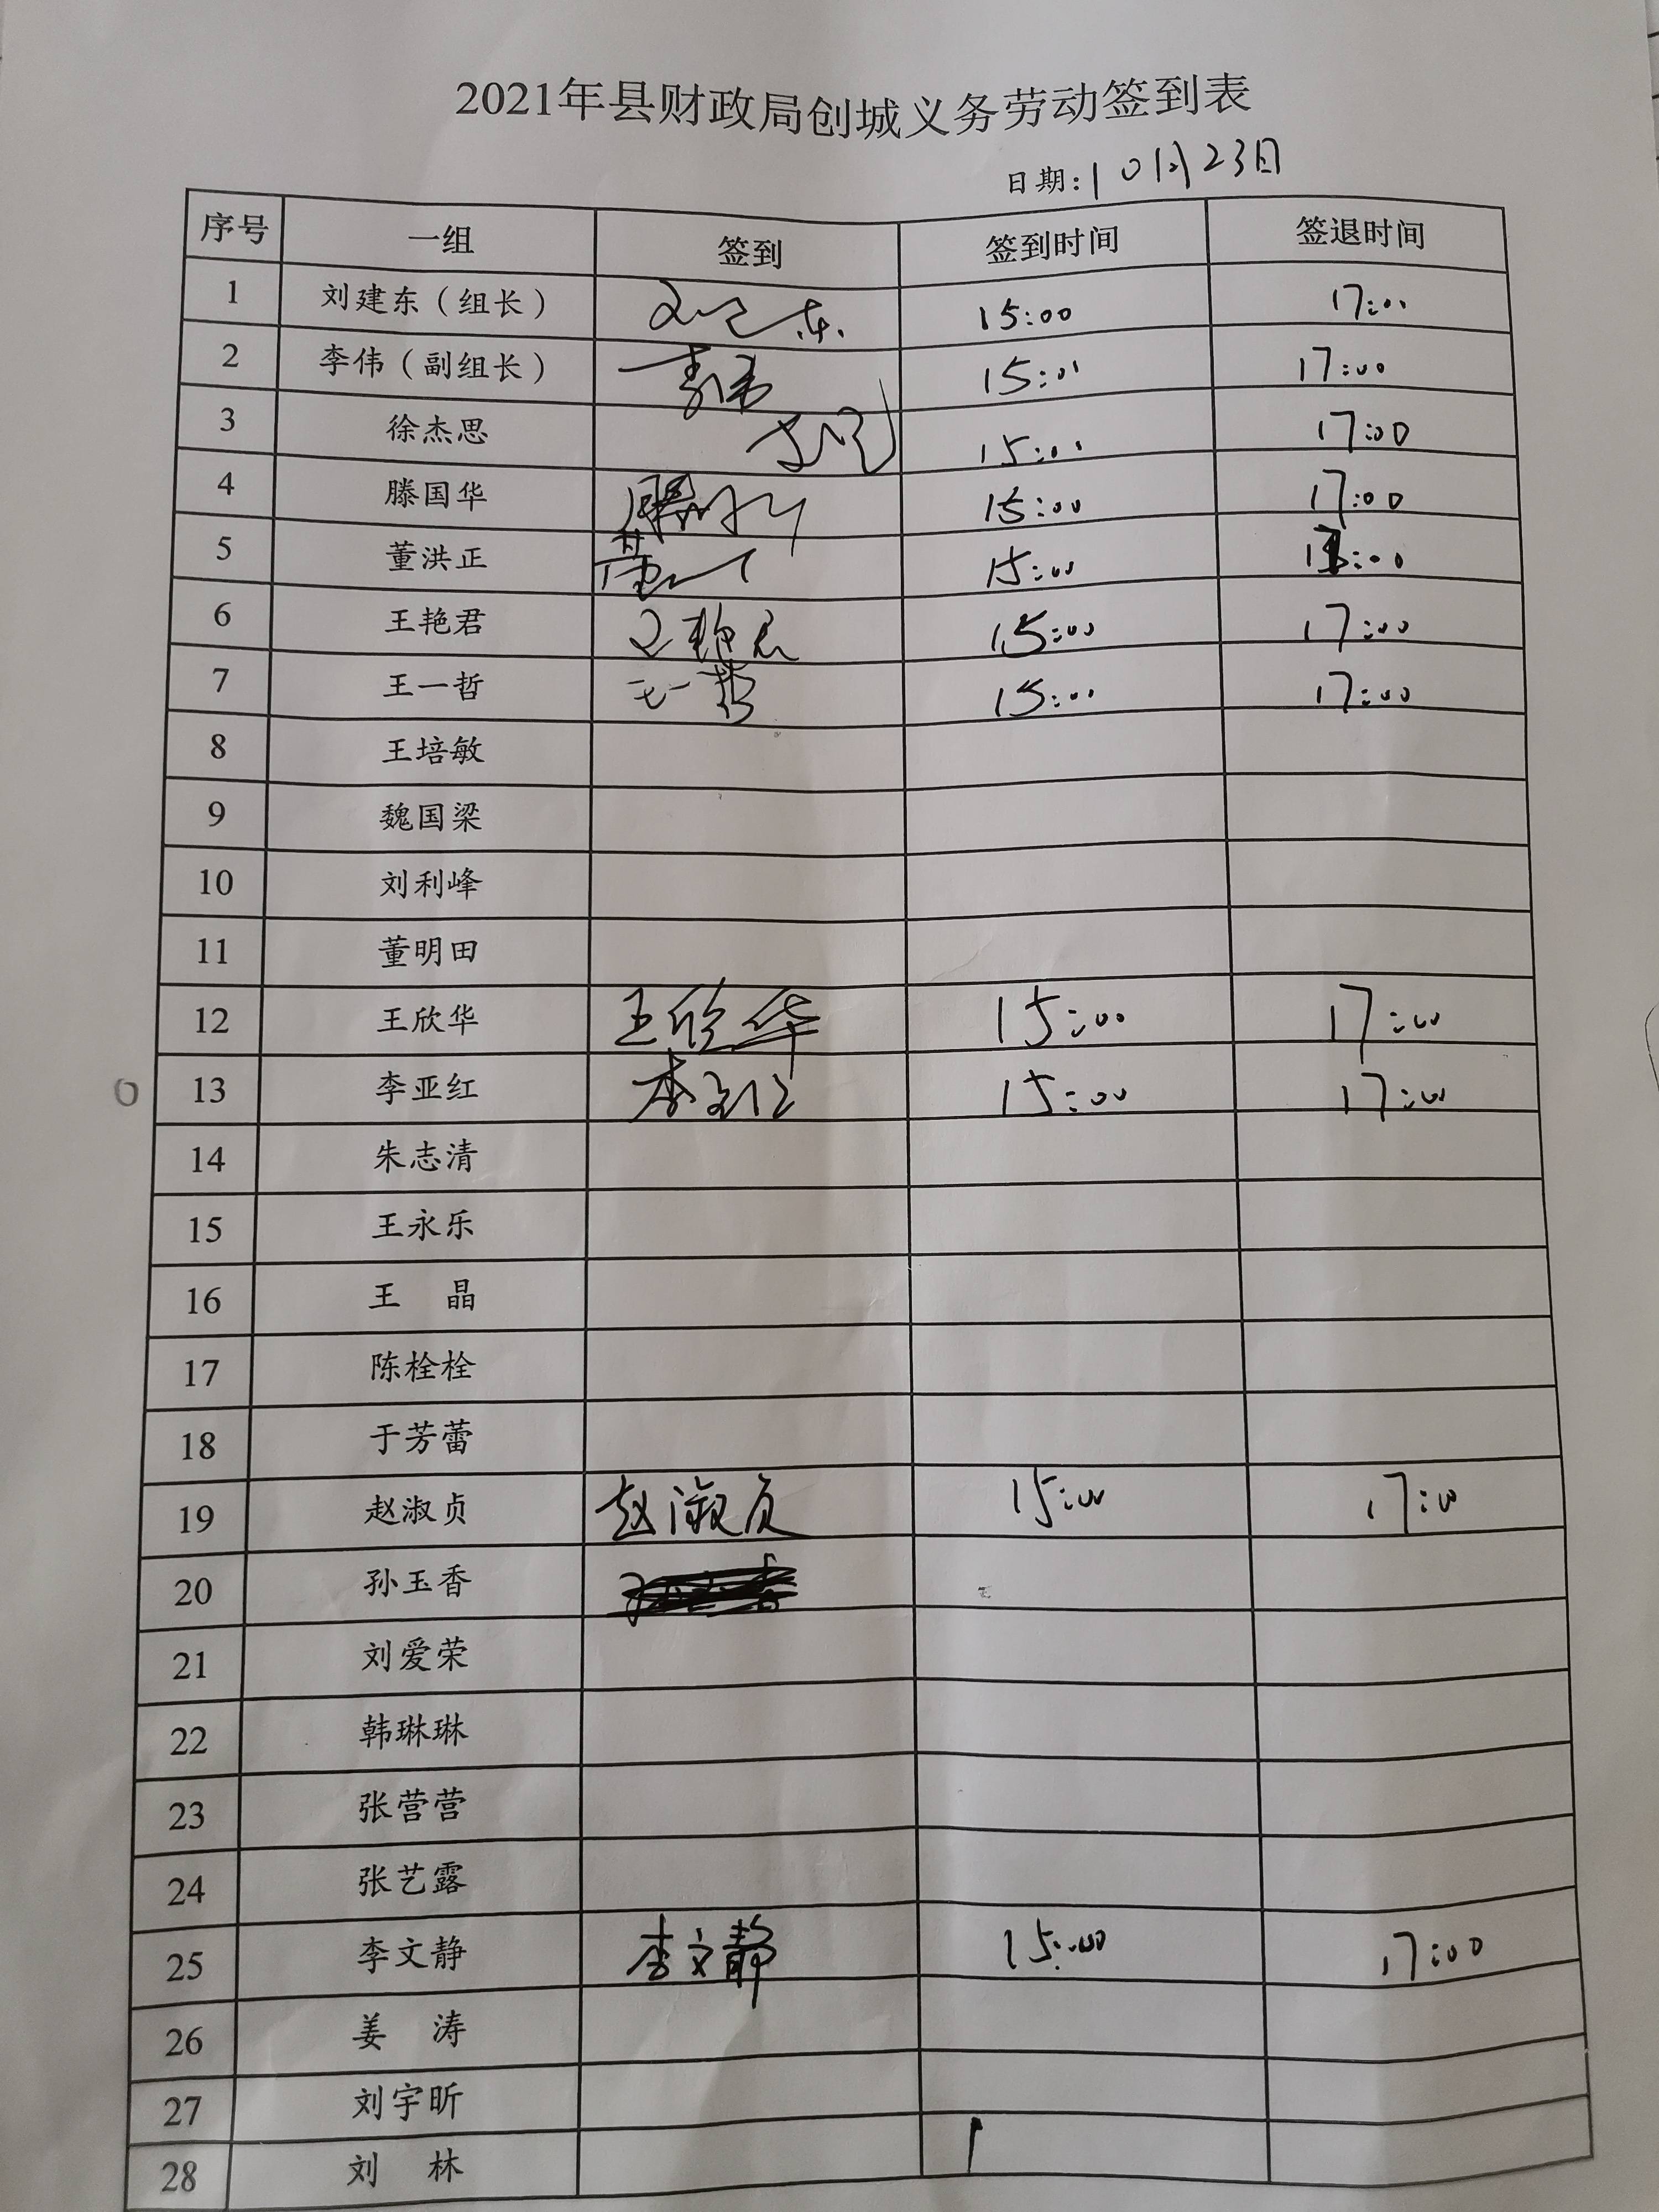 2021年县财政局创城义务劳动签到表
日期:10月23日
序号 一组 签到 签到时间 签退时间
1 刘建东（组长） 刘建东 15:00 17:00
2 李伟（副组长） 李伟 15:00 17:00
3 徐杰思 15:00 17:00
4 滕国华 滕国华 15:00 17:00
5 董洪正 董洪正 15:00
6 王艳君 王艳君 15:00 17:00
7 王一哲 王一哲 15:00 17:00
8 王培敏
9 魏国梁
10 刘利峰
11 董明田
12 王欣华 王欣华 15:00 17:00
13 李亚红 李亚红 15:00 17:00
14 朱志清
15 王永乐
16 王 晶
17 陈栓栓
18 于芳蕾
19 赵淑贞 赵淑贞 15:00 17:00
20 孙玉香
21 刘爱荣
22 韩琳琳
23 张营营
24 张艺露
25 李文静 李文静 15:00 17:00
26 姜 涛
27 刘宇昕
28 刘 林